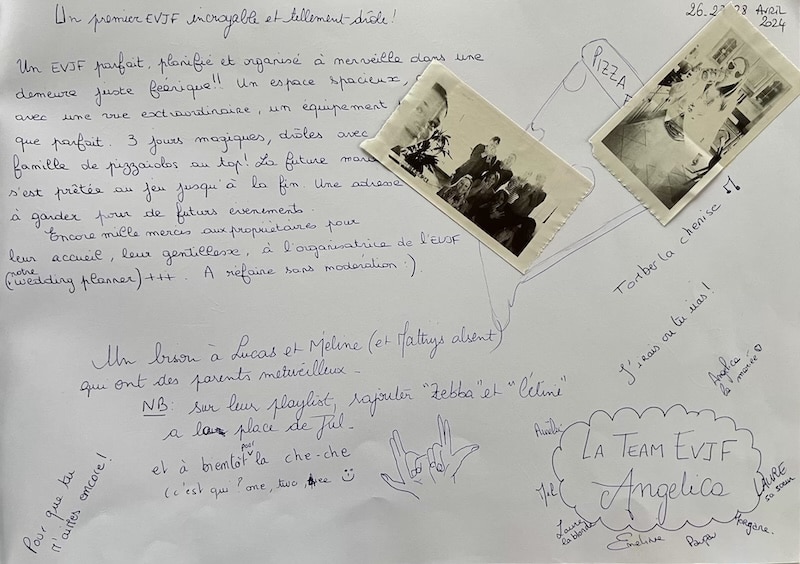 Un premier EVJF incroyable et tellement drôle!
26-27-28 Avril
2024
Un EVJF parfait, planifié et organisé à merveille dans une
demeure juste féérique!! Un espace spacieux,
avec une vue extraordinaire, un équipement
que parfait. 3 jours magiques, drôles avec
famille de pizzaiolos au top! La future
s'est prêtée au jeu jusqu'à la fin. Une adresse
à garder pour de futurs evenements.
Encore mille mercis aux propriétaires pour
leur accueil, leur gentillesse, à l'organisatrice de l'EVJF
(notre wedding planner) +++. A refaire sans modération :).
PIZZA
Tomber la chemise
J'irais ou tu iras!
Angelica
la mariée
Un bisou à Lucas et Méline (et Mathys absent)
qui ont des parents merveilleux.
NB: sur leur playlist, rajouter "Zebba" et "Céline"
a la place de Jul.
et à bientôt pour la che-che
(c'est qui? one, two, three
Pour que tu
m'aimes encore!
LA TEAM EVJF
Angelica
Laura
la blonde
Emeline
Morgane.
LAURE
sa soeur